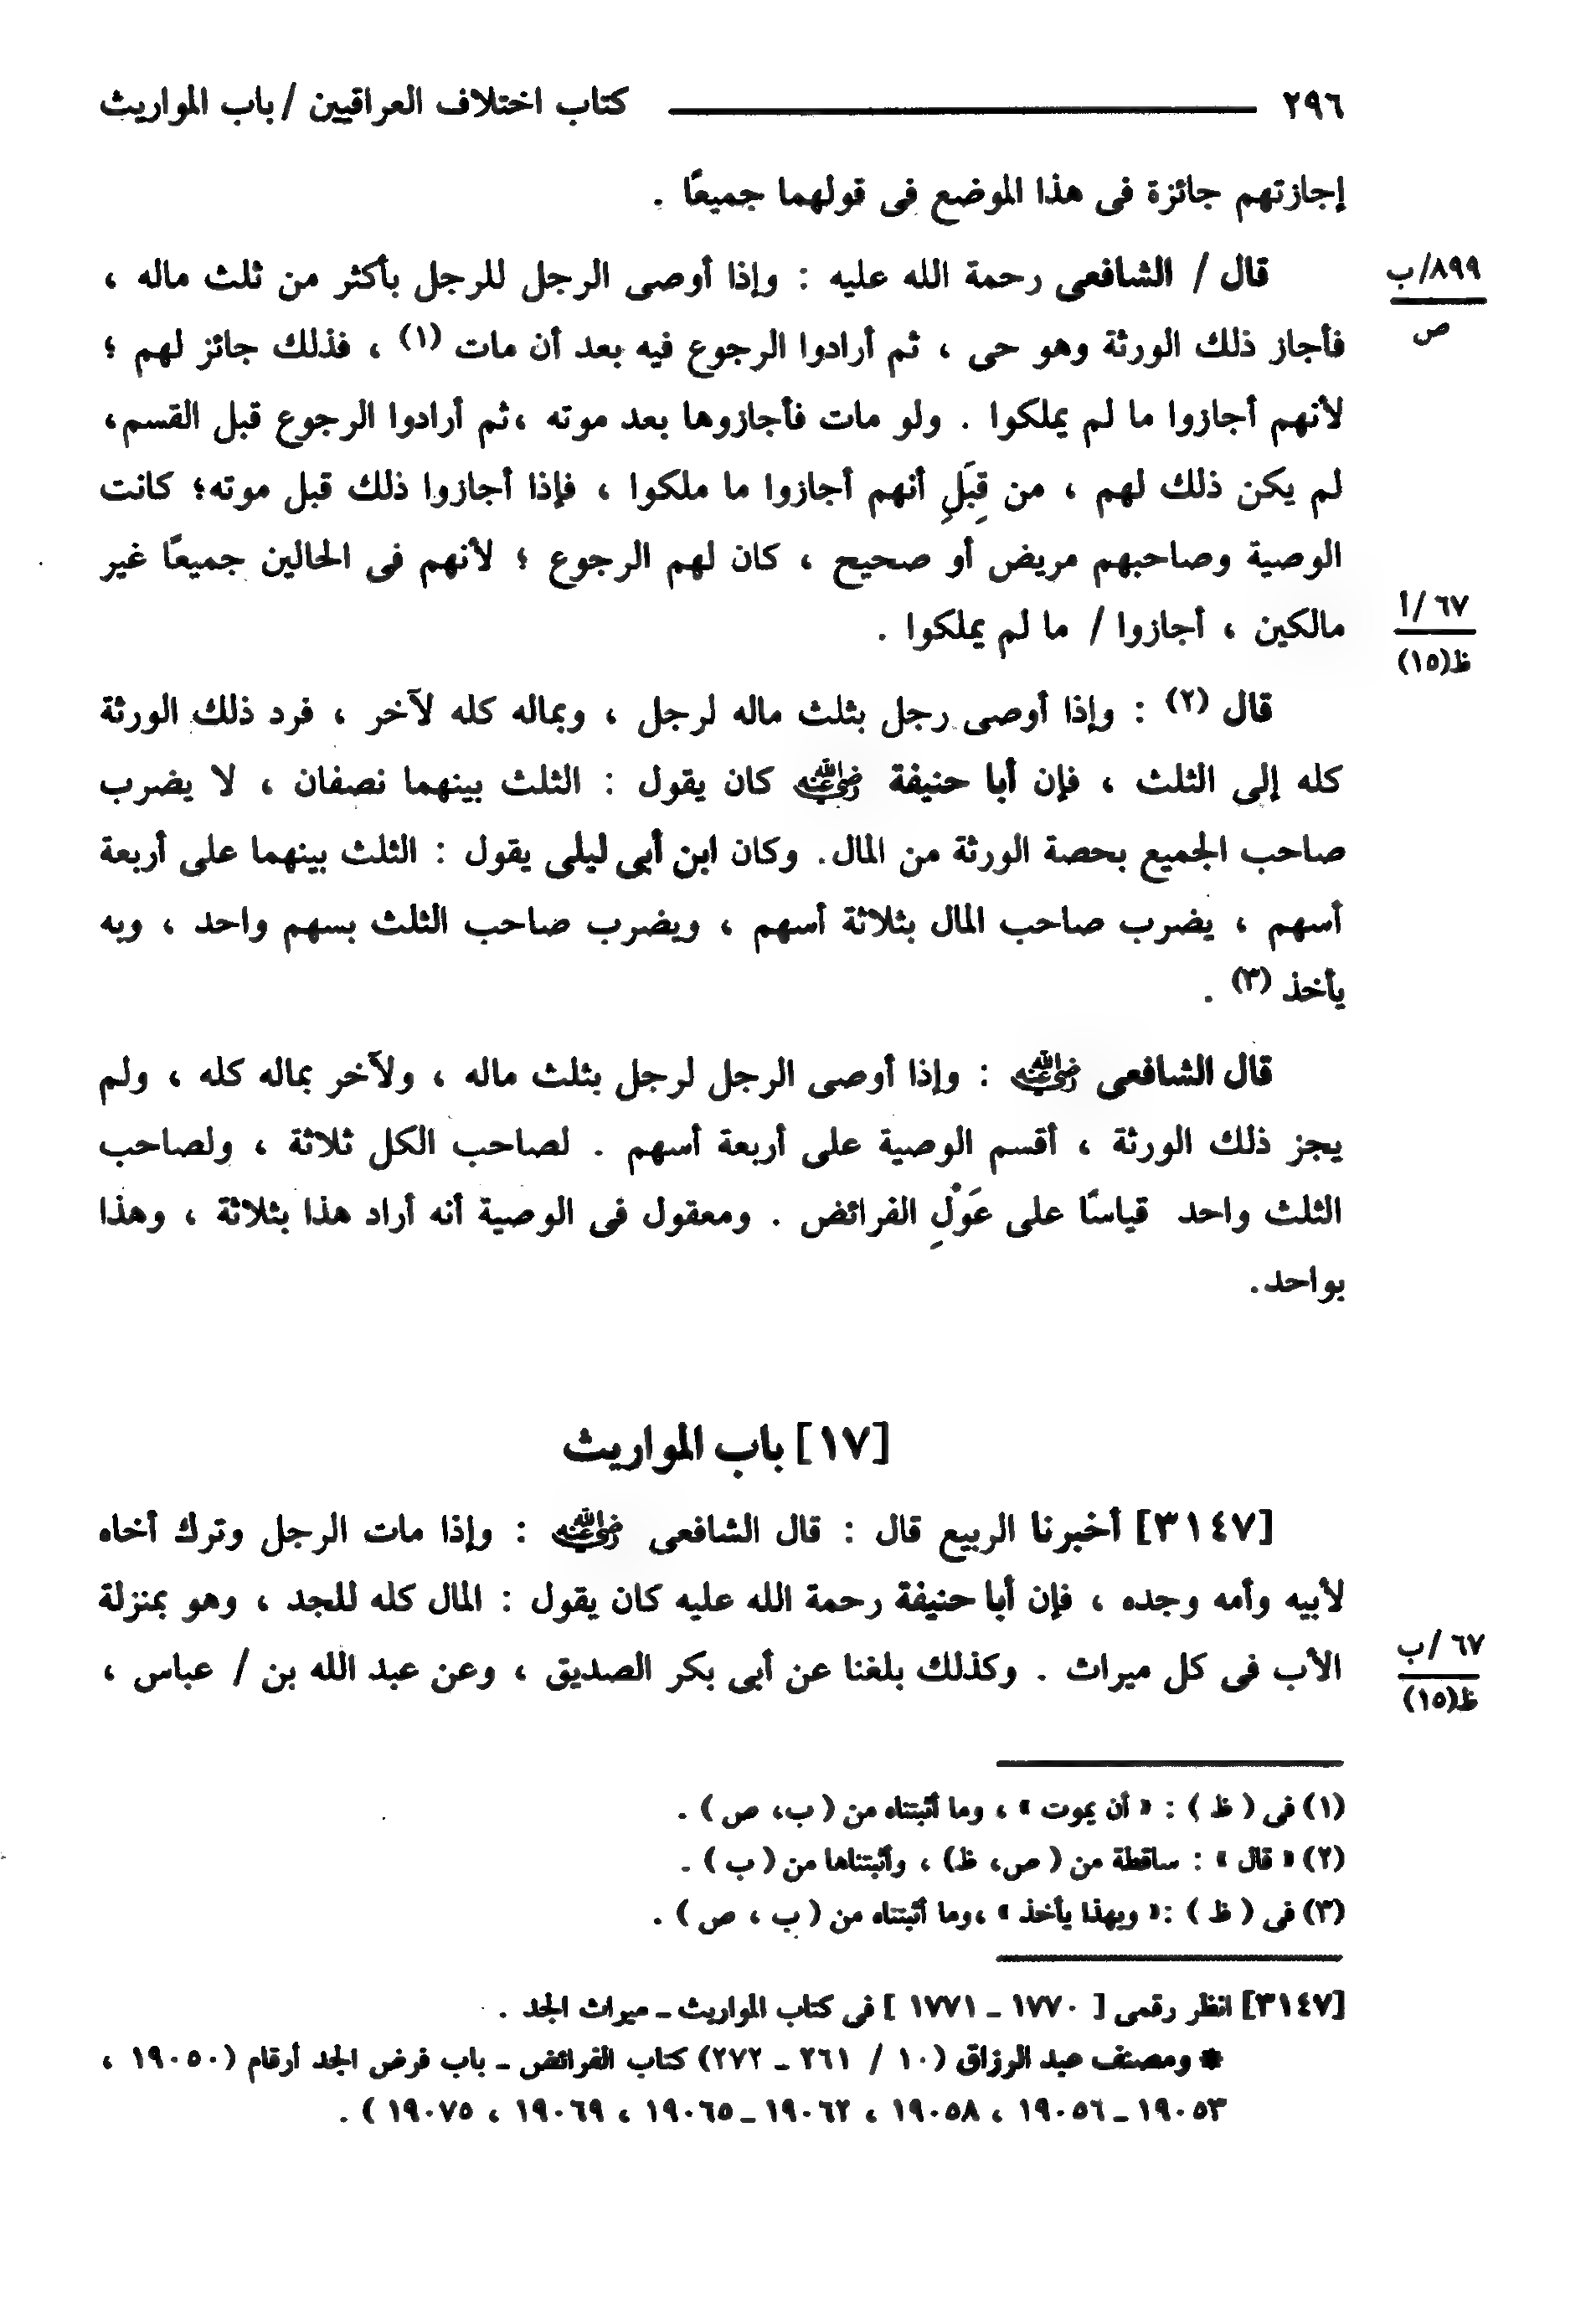 ٢٩٦ كتاب اختلاف العراقيين / باب المواريث
إجازتهم جائزة فى هذا الموضع فى قولهما جميعًا .
قال / الشافعى رحمة الله عليه : وإذا أوصى الرجل للرجل بأكثر من ثلث ماله ،
٨٩٩/ب
ص
فأجاز ذلك الورثة وهو حى ، ثم أرادوا الرجوع فيه بعد أن مات (١) ، فذلك جائز لهم ؛
لأنهم أجازوا ما لم يملكوا . ولو مات فأجازوها بعد موته ،ثم أرادوا الرجوع قبل القسم،
لم يكن ذلك لهم ، من قِبَلِ أنهم أجازوا ما ملكوا ، فإذا أجازوا ذلك قبل موته؛ كانت
الوصية وصاحبهم مريض أو صحيح ، كان لهم الرجوع ؛ لأنهم فى الحالين جميعًا غير
مالكين ، أجازوا / ما لم يملكوا .
٦٧ /أ
ظ(١٥)
قال (٢) : وإذا أوصى رجل بثلث ماله لرجل ، وبماله كله لآخر ، فرد ذلك الورثة
كله إلى الثلث ، فإن أبا حنيفة رضي الله عنه كان يقول : الثلث بينهما نصفان ، لا يضرب
صاحب الجميع بحصة الورثة من المال. وكان ابن أبى ليلى يقول : الثلث بينهما على أربعة
أسهم ، يضرب صاحب المال بثلاثة أسهم ، ويضرب صاحب الثلث بسهم واحد ، وبه
يأخذ (٣) .
قال الشافعى رضي الله عنه : وإذا أوصى الرجل لرجل بثلث ماله ، ولآخر بماله كله ، ولم
يجز ذلك الورثة ، أقسم الوصية على أربعة أسهم . لصاحب الكل ثلاثة ، ولصاحب
الثلث واحد قياسًا على عَوْلِ الفرائض . ومعقول فى الوصية أنه أراد هذا بثلاثة ، وهذا
بواحد.
[١٧] باب المواريث
[٣١٤٧] أخبرنا الربيع قال : قال الشافعى رضي الله عنه : وإذا مات الرجل وترك أخاه
لأبيه وأمه وجده ، فإن أبا حنيفة رحمة الله عليه كان يقول : المال كله للجد ، وهو بمنزلة
الأب فى كل ميراث . وكذلك بلغنا عن أبى بكر الصديق ، وعن عبد الله بن / عباس ،
٦٧ /ب
ظ(١٥)
(١) فى ( ظ ) : « أن يموت » ، وما أثبتناه من ( ب، ص ) .
(٢) « قال » : ساقطة من ( ص، ظ) ، وأثبتناها من ( ب ) .
(٣) فى ( ظ ) :« وبهذا يأخذ » ،وما أثبتناه من ( ب ، ص ) .
[٣١٤٧] انظر رقمى [ ١٧٧٠ ـ ١٧٧١ ] فى كتاب المواريث ـ ميراث الجد .
* ومصنف عبد الرزاق (١٠ / ٢٦١ ـ ٢٧٢) كتاب الفرائض ـ باب فرض الجد أرقام (١٩٠٥٠ ،
١٩٠٥٣ ـ ١٩٠٥٦ ، ١٩٠٥٨ ، ١٩٠٦٢ ـ ١٩٠٦٥ ، ١٩٠٦٩ ، ١٩٠٧٥ ) .